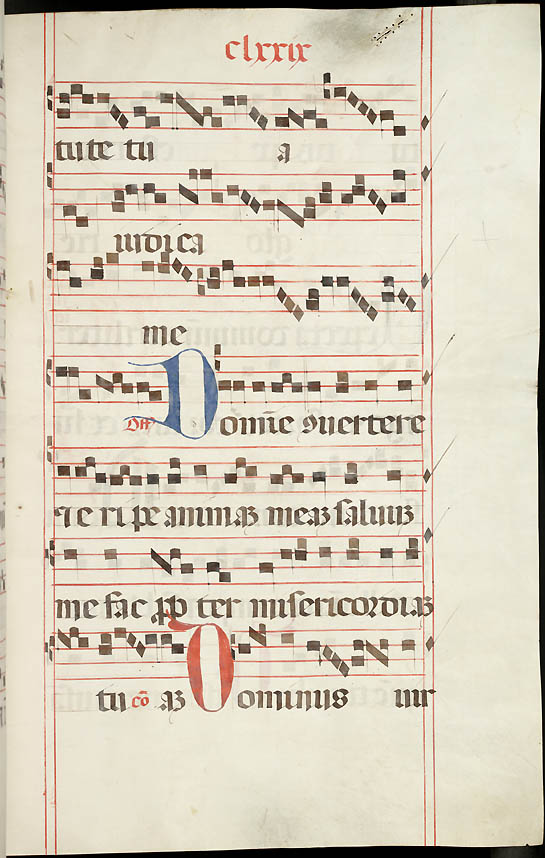 clxxix
tute tu a
iudica
me
Off Domīe ɔuertere
et eripe animaʒ meaʒ saluuʒ
me fac ꝓp ter misericordiaʒ
tu aʒ cō Dominus vir